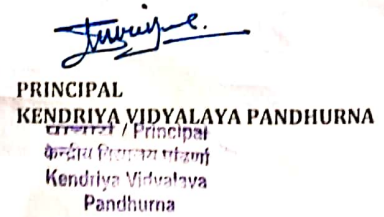 PRINCIPAL
KENDRIYA VIDYALAYA PANDHURNA
प्राचार्य / Principal
केन्द्रीय विद्यालय पांढुर्णा
Kendriya Vidyalaya
Pandhurna